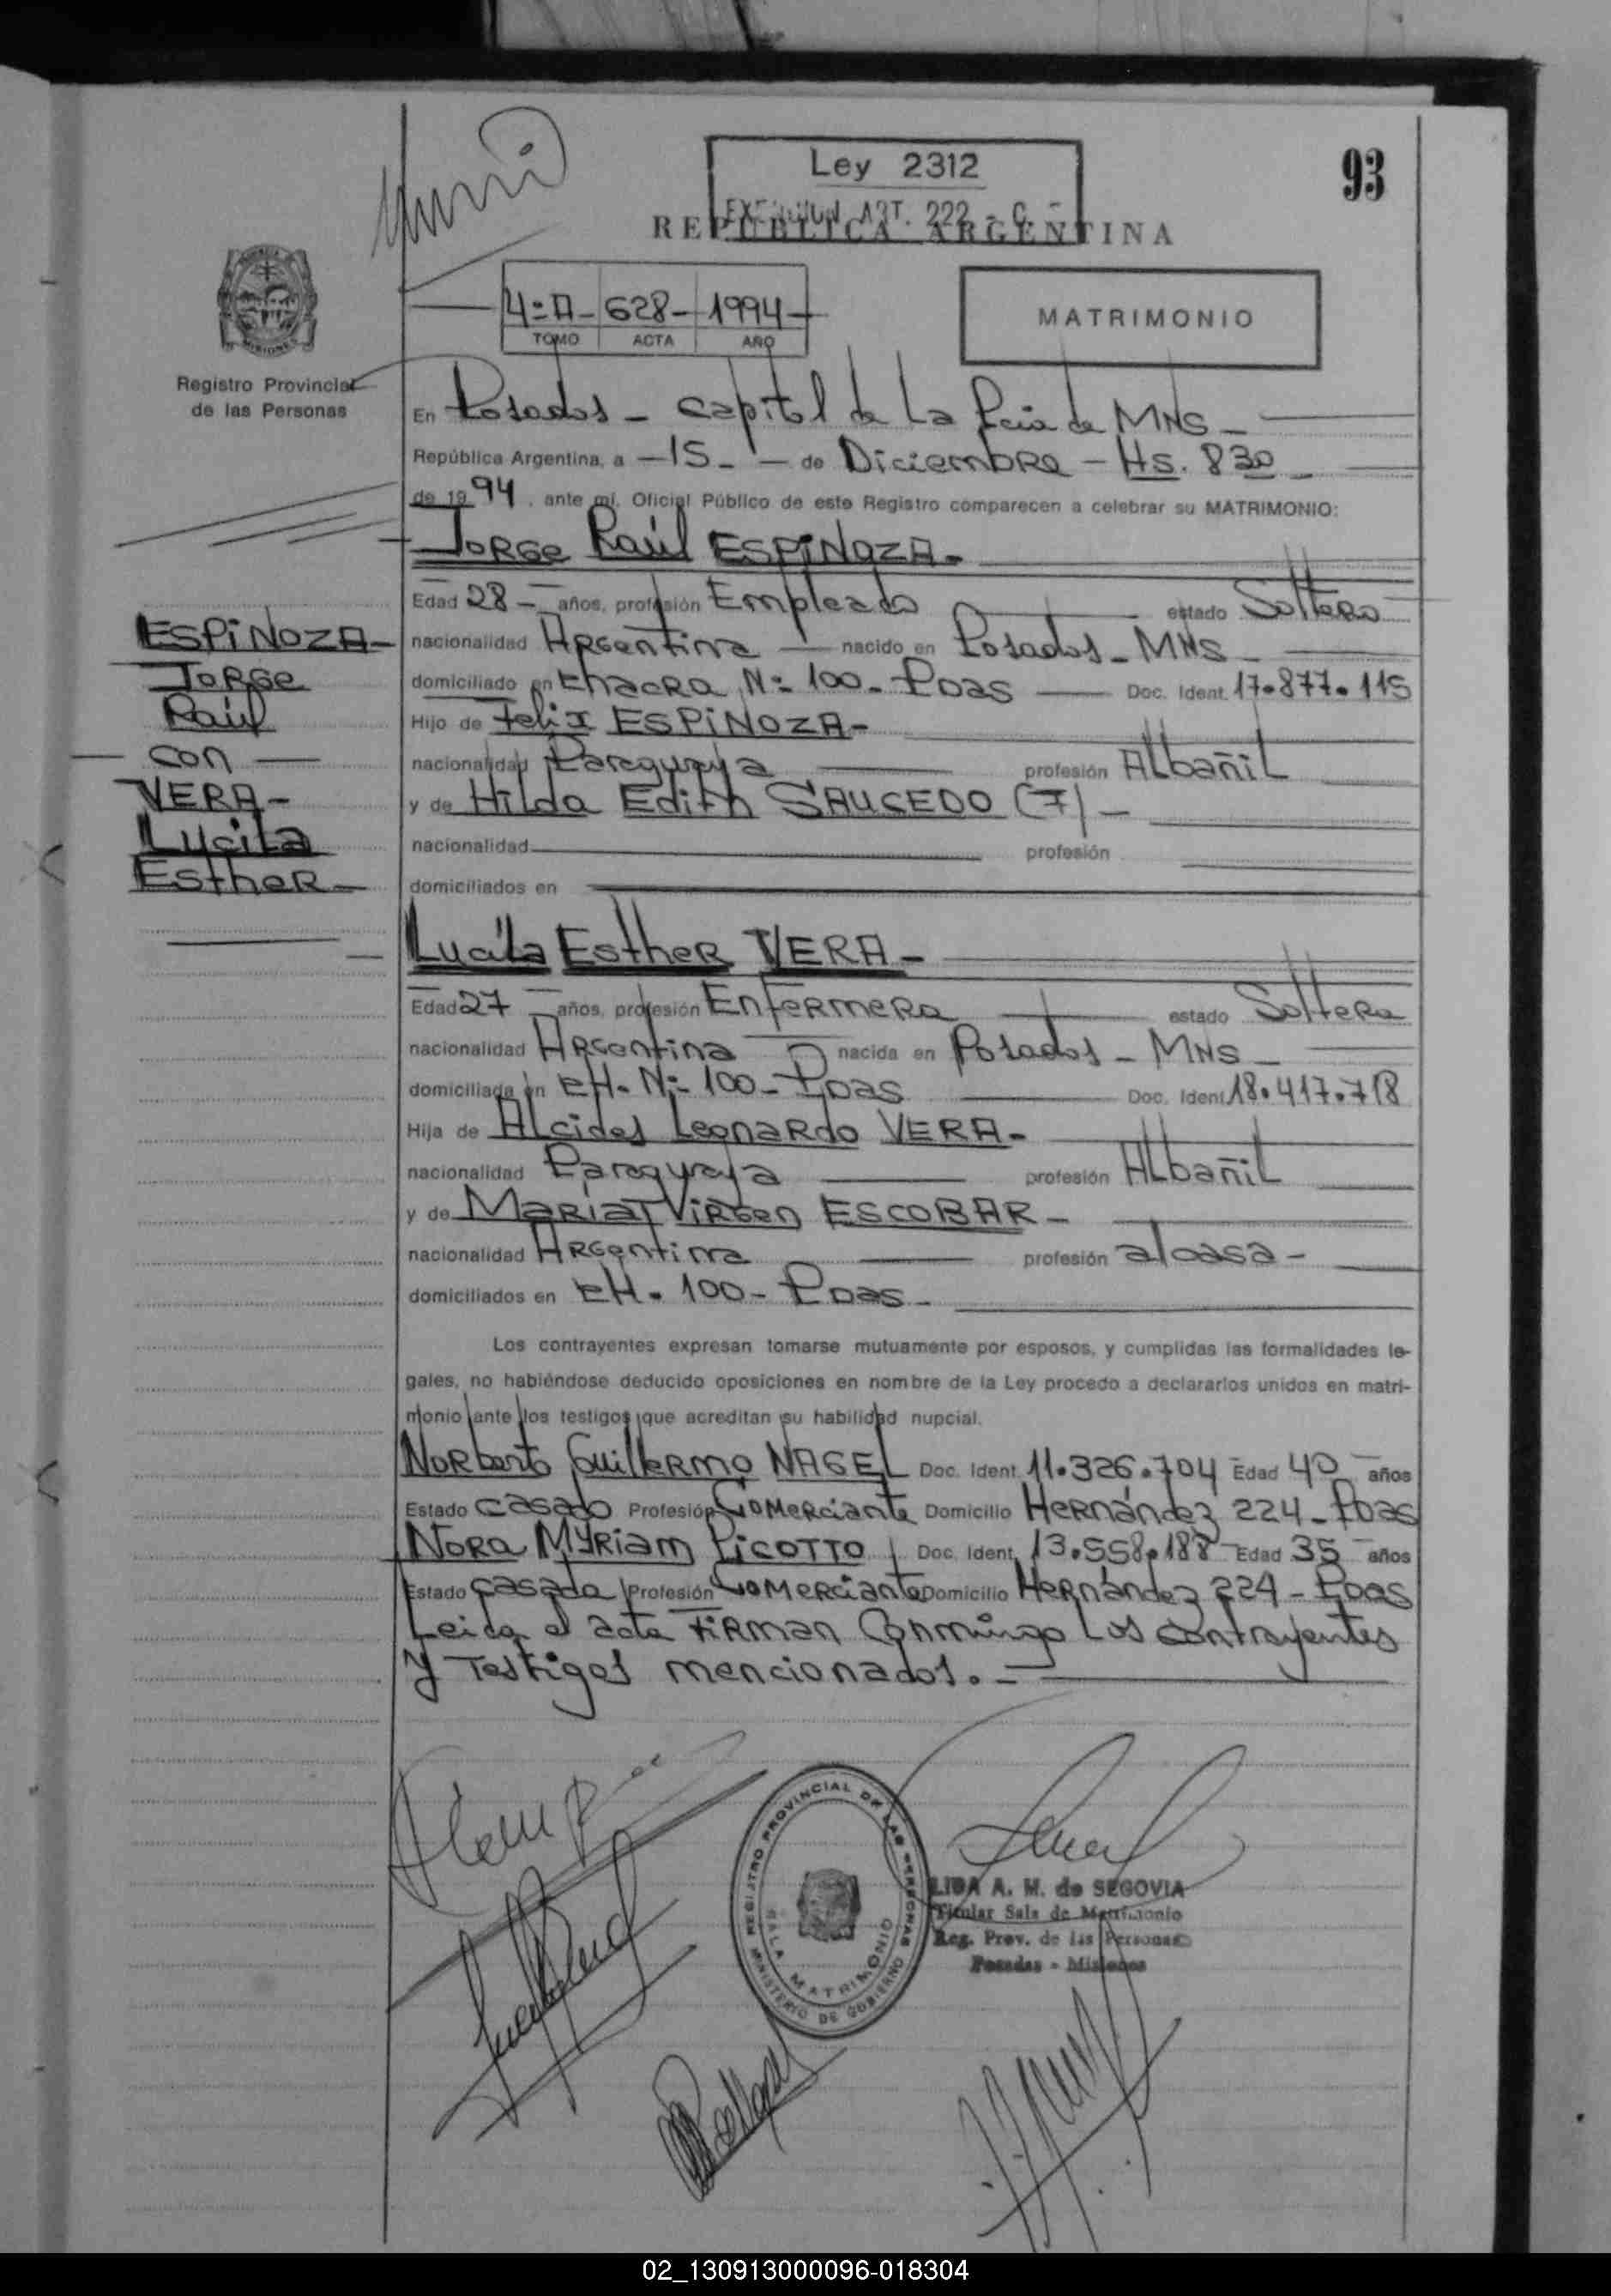 93
Ley 2312
ART. 222 - C. -
REPUBLICA ARGENTINA
4=A- 628- 1994-
TOMO ACTA AÑO
MATRIMONIO
Registro Provincial
de las Personas
En Posadas - Capital de La Pcia de MNS -
República Argentina, a -15- de Diciembre - Hs. 8 30
de 19 94, ante mí, Oficial Público de este Registro comparecen a celebrar su MATRIMONIO:
Jorge Raúl ESPINOZA-
Edad 28- años, profesión Empleado estado Soltero
nacionalidad Argentina nacido en Posadas - MNS -
domiciliado en Chacra N= 100- Pdas Doc. Ident. 17.877.115
Hijo de Felix ESPINOZA-
nacionalidad Paraguaya profesión Albañil
y de Hilda Edith SAUCEDO (F) -
nacionalidad profesión
domiciliados en
ESPINOZA-
Jorge
Raúl
con
VERA-
Lucila
Esther-
Lucila Esther VERA-
Edad 27 años, profesión Enfermera estado Soltera
nacionalidad Argentina nacida en Posadas - MNS -
domiciliada en CH. N= 100- Pdas Doc. Ident. 18.417.718
Hija de Alcides Leonardo VERA-
nacionalidad Paraguaya profesión Albañil
y de Maria Virgen ESCOBAR-
nacionalidad Argentina profesión a/casa-
domiciliados en CH. 100- Pdas-
Los contrayentes expresan tomarse mutuamente por esposos, y cumplidas las formalidades le-
gales, no habiéndose deducido oposiciones en nombre de la Ley procedo a declararlos unidos en matri-
monio ante los testigos que acreditan su habilidad nupcial.
Norberto Guillermo NAGEL Doc. Ident. 11.326.704 Edad 40 años
Estado casado Profesión Comerciante Domicilio Hernández 224- Pdas
Nora Myriam PICOTTO Doc. Ident. 13.558.188 Edad 35 años
Estado casada Profesión Comerciante Domicilio Hernández 224- Pdas
Leida el acta Firman Conmingo Los contrayentes
y Testigos mencionados.-
REGISTRO PROVINCIAL DE LAS PERSONAS
SALA MATRIMONIO
MINISTERIO DE GOBIERNO
LIDA A. M. de SEGOVIA
Titular Sala de Matrimonio
Reg. Prov. de las Personas
Posadas - Misiones
02_130913000096-018304